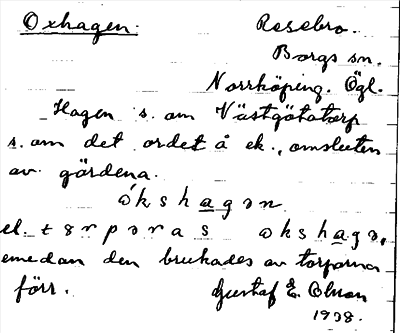 Oxhagen. Resebro.
Borgs sn.
Norrköping. Ögl.
Hagen s. om Västgötatorp
s. om det ordet å ek., omsluten
av gärdena.
ókshagən
el. tɜrpəras okshagə,
emedan den brukades av torparna
förr. Gustaf E. Olson
1938.